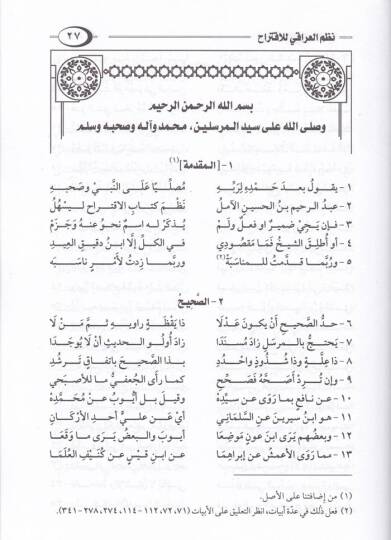 نظم العراقي للاقتراح
٢٧
بسم الله الرحمن الرحيم
وصلى الله على سيد المرسلين، محمد وآله وصحبه وسلم
١- [المقدمة](١)
١- يقولُ بعدَ حَمْدِهِ لِرَبِّهِ مُصلِّيًا عَلَى النَّبِيِّ وَصَحْبِهِ
٢- عبدُ الرحيمِ بنُ الحسينِ الآملُ نَظْمَ كتابِ الاقتراحِ ليسْهُلُ
٣- فإن يَجِئْ ضميرٌ او فعلٌ ولَمْ يُذكَرْ له اسمٌ نحوُ عنهُ وَجَزَمْ
٤- أو أُطلِقَ الشيخُ فَمَا مَقصُودِي في الكلِّ إلَّا ابنُ دقيقِ العِيدِ
٥- ورُبَّما قدَّمتُ للـمناسَبَةْ(٢) وربَّمـا زِدتُ لأَمْرٍ ناسَبَهْ
٢- الصَّحِيحُ
٦- حدُّ الصَّحيحِ أَنْ يكونَ عَدْلَا ذَا يَقْظَةٍ راويـهِ ثـمَّ مَنْ لَا
٧- يَحتجُّ بالـمرسَلِ زادَ مُسنَدَا زادَ أُولُو الحديثِ أَنْ لَا يُوجَدَا
٨- ذا عِلَّةٍ وذا شُذُوذٍ واحْدُدِ بذا الصَّحيحَ باتفاقٍ تَرشُدِ
٩- وإن تُرِدْ أَصَحَّهُ فَصَحِّحِ كما رأى الجُعفيُّ ما للأصبَحي
١٠- عن نافعٍ بما رَوَى عن سيِّدِهْ وقيلَ بل أيُّوبُ عنْ مُحمَّدِهْ
١١- هو ابنُ سيرينَ عنِ السَّلْمَاني أي عَنْ عليٍّ أحدِ الأرْكَانِ
١٢- وبعضُهم يَرَى ابنَ عونٍ مَوضِعَا أيوبَ والبعضُ يَرَى ما وَقَعَا
١٣- مما رَوَى الأعمشُ عن إبراهِمَا عن ابنِ قيسٍ عن كُنَيْفِ العُلَمَا
(١) من إضافتنا على الأصل.
(٢) فعل ذلك في عدّة أبيات، انظر التعليق على الأبيات (٧١، ٧٢، ١١٢-١١٤، ٢٧٤، ٢٧٨-٣٤١).